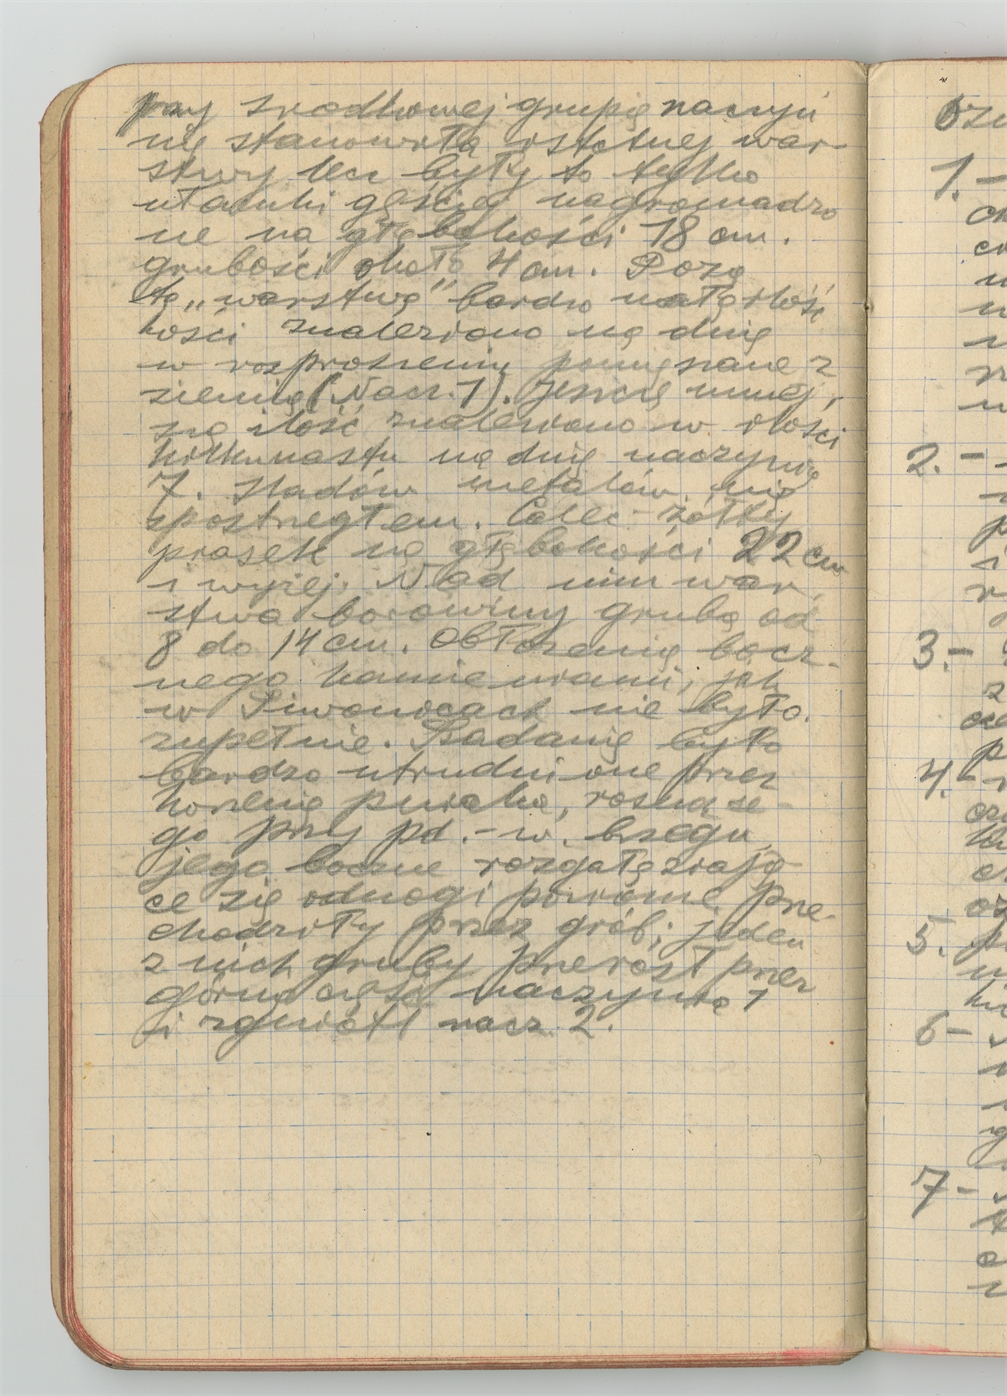 przy środkowej grupie naczyń
nie stanowiła istotnej war-
stwy lecz były to tylko
ułamki gęściej nagromadzo
ne na głębokości 18 cm.
grubości około 4 cm. Poza
tą „warstwą" bardzo małą ilość
kości znaleziono na dnie
w rozproszeniu pomieszane z
ziemią (Nacz. 1). Jeszcze mniej
szą ilość znaleziono w ilości
kilkunastu na dnie naczynia
7. śladów metalów nie
spostrzegłem. Calec - żółty
piasek na głębokości 22 cm
i wyżej. Nad nim war
stwa borowiny gruba od
8 do 14 cm. Obłożenia bocz-
nego kamieniami, jak
w Siwonicach nie było
zupełnie. Badanie było
bardzo utrudnione przez
korzenie pniaka, rosnące-
go przy pd.-w. brzegu
jego boczne rozgałęziają-
ce się odnogi poziome prze-
chodziły przez grób; jeden
z nich gruby przerósł przez
górną część naczynia 1
i zgniótł nacz. 2.
1.-
2.-
3.-
4.-
5.
6-
7-